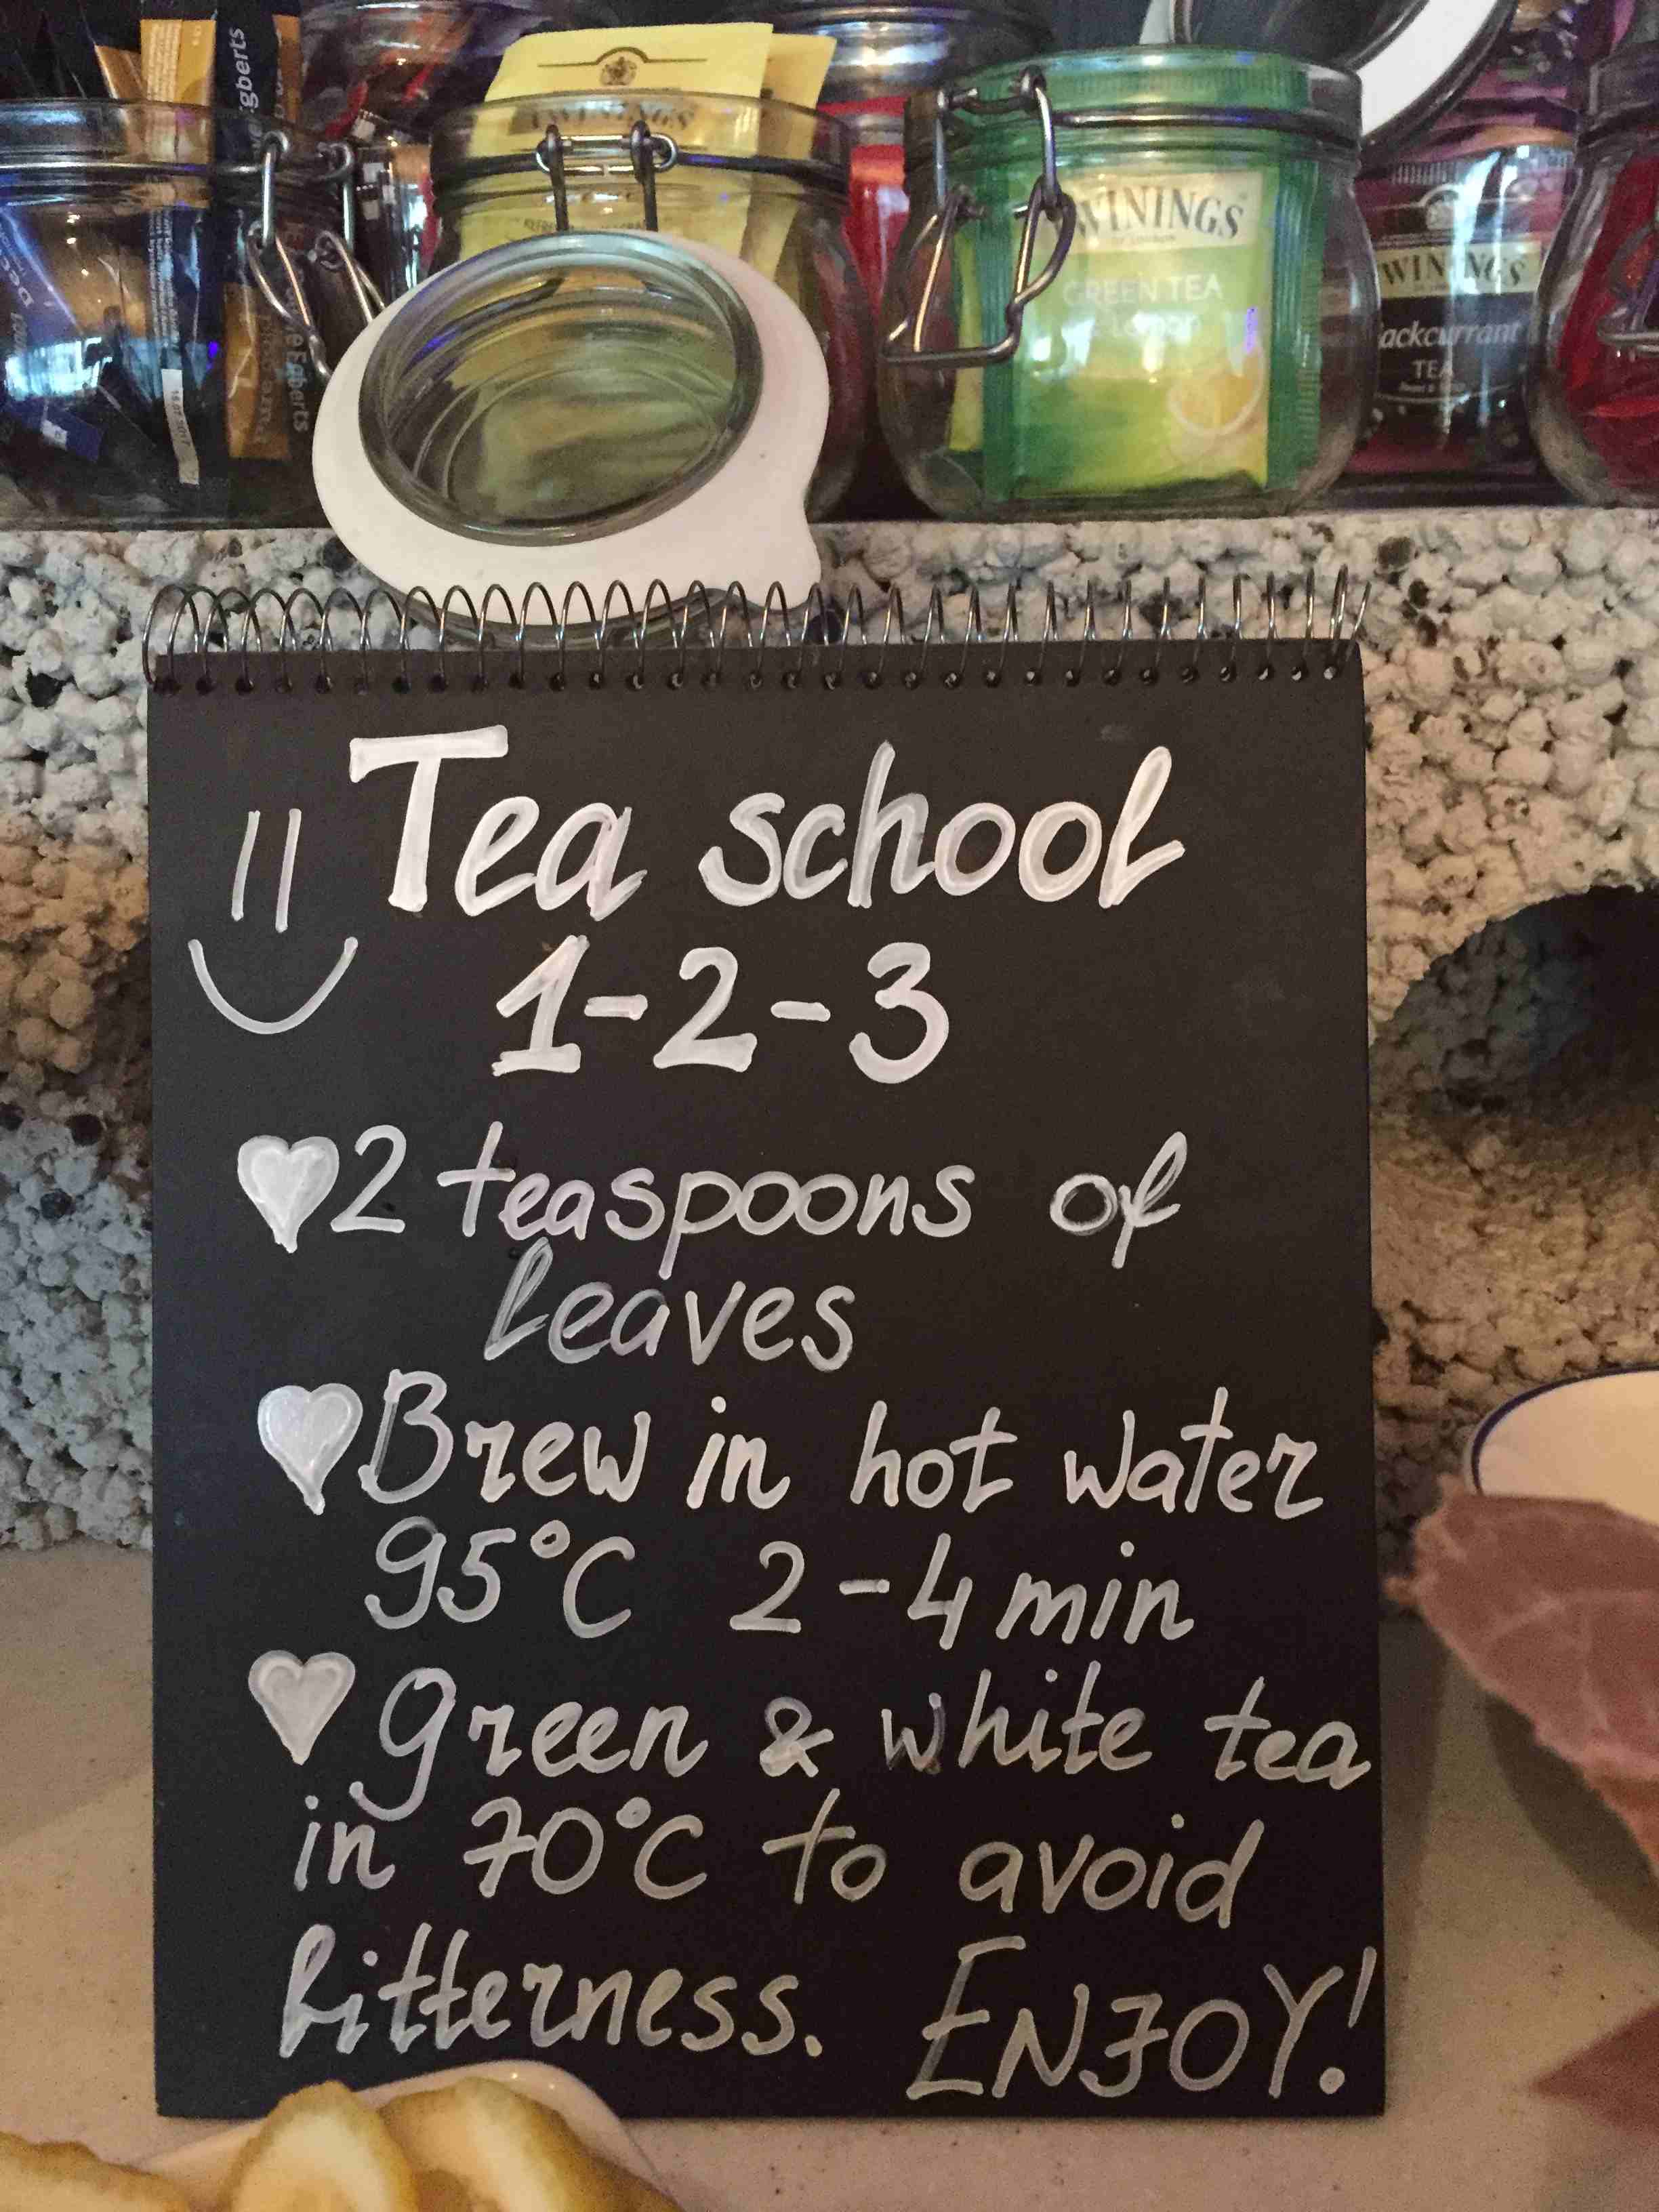 Egberts
TWININGS
TWININGS
GREEN TEA
& Lemon
TWININGS
Blackcurrant
TEA
Egberts
Tea school
1-2-3
2 teaspoons of
leaves
Brew in hot water
95°C 2-4 min
Green & white tea
in 70°C to avoid
bitterness. ENJOY!